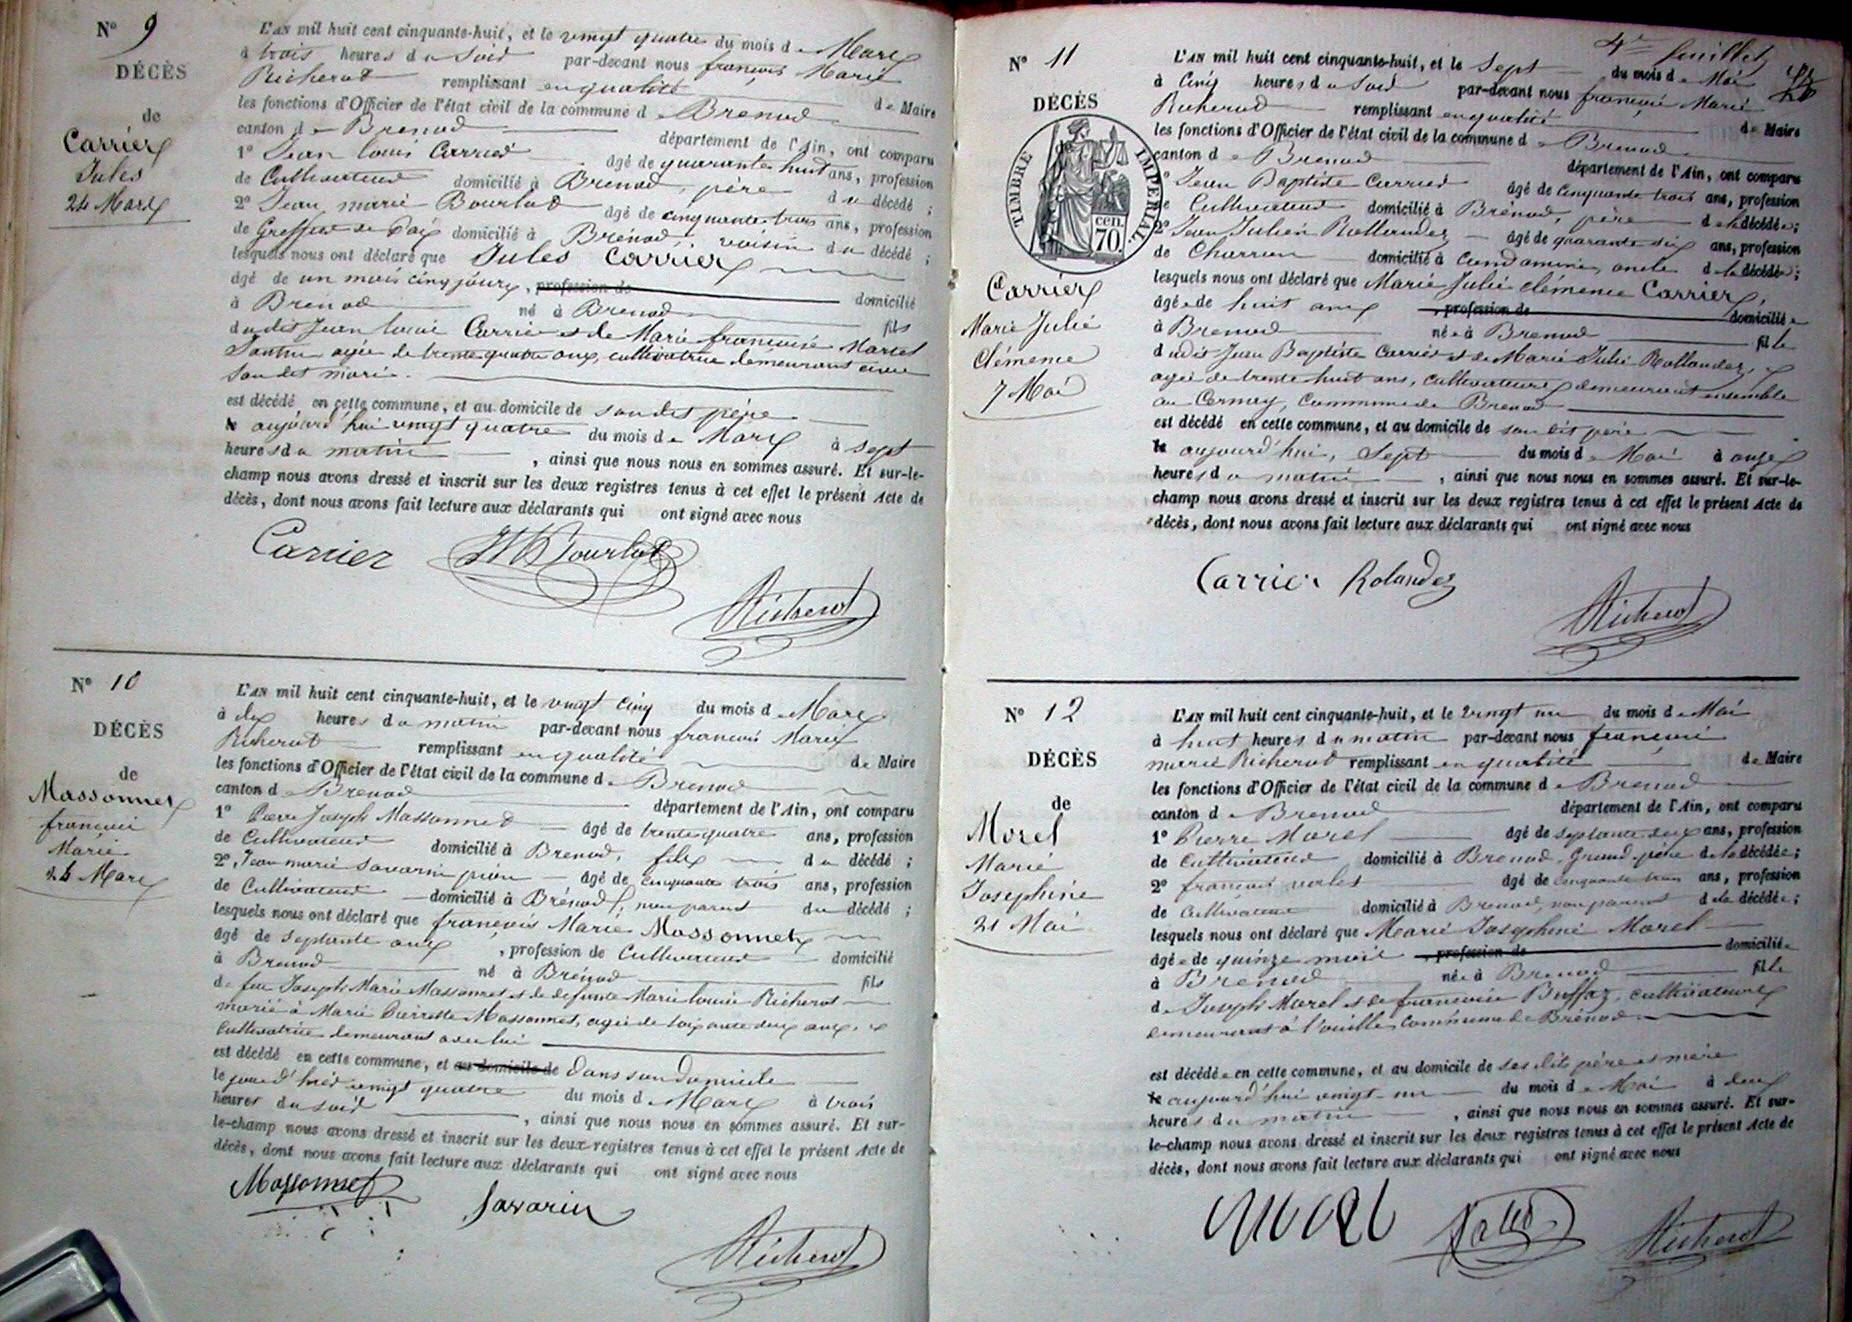 N° 9
DÉCÈS
de
Carrier
Jules
24 Mars
L'AN mil huit cent cinquante-huit, et le vingt quatre du mois de Mars
à trois heures du Soir par-devant nous françois Marie
Richerot remplissant en qualité de Maire
les fonctions d'Officier de l'état civil de la commune de Brenod
canton de Brenod département de l'Ain, ont comparu
1° Jean louis Carrier âgé de quarante huit ans, profession
de Cultivateur domicilié à Brenod, père du décédé ;
2° Jean marie Bourlot âgé de cinquante trois ans, profession
de Greffier de Paix domicilié à Brénod, voisin du décédé ;
lesquels nous ont déclaré que Jules Carrier
âgé de un mois cinq jours, profession de domicilié
à Brenod né à Brenod fils
dudit Jean louis Carrier et de Marie françoise Martel
âgée de trente quatre ans, cultivatrice demeurant avec
son dit mari.
est décédé en cette commune, et au domicile de son dit père
le aujourd'hui vingt quatre du mois de Mars à sept
heures du matin, ainsi que nous nous en sommes assuré. Et sur-le-
champ nous avons dressé et inscrit sur les deux registres tenus à cet effet le présent Acte de
décès, dont nous avons fait lecture aux déclarants qui ont signé avec nous
Carrier JM Bourlot
Richerot
N° 10
DÉCÈS
de
Massonnet
françois
Marie
24 Mars
L'AN mil huit cent cinquante-huit, et le vingt cinq du mois de Mars
à dix heures du matin par-devant nous françois Marie
Richerot remplissant en qualité de Maire
les fonctions d'Officier de l'état civil de la commune de Brenod
canton de Brenod département de l'Ain, ont comparu
1° Pierre Joseph Massonnet âgé de trente quatre ans, profession
de Cultivateur domicilié à Brenod, fils du décédé ;
2° Jean marie Savarin âgé de cinquante trois ans, profession
de Cultivateur domicilié à Brénod, non parent du décédé ;
lesquels nous ont déclaré que françois Marie Massonnet
âgé de septante ans, profession de Cultivateur domicilié
à Brenod né à Brénod fils
de feu Joseph Marie Massonnet et de défunte Marie louise Richerot
marié à Marie Pierrette Massonnet, âgée de soixante deux ans,
cultivatrice demeurant avec lui
est décédé en cette commune, et au domicile de dans son domicile
le jour d'hier vingt quatre du mois de Mars à trois
heures du soir, ainsi que nous nous en sommes assuré. Et sur-
le-champ nous avons dressé et inscrit sur les deux registres tenus à cet effet le présent Acte de
décès, dont nous avons fait lecture aux déclarants qui ont signé avec nous
Massonnet Savarin
Richerot
4e feuillet
N° 11
DÉCÈS
TIMBRE IMPÉRIAL
70 cen.
Carrier
Marie Julie
Clémence
7 Mai
L'AN mil huit cent cinquante-huit, et le Sept du mois de Mai
à Cinq heures du Soir par-devant nous françois Marie
Richerot remplissant en qualité de Maire
les fonctions d'Officier de l'état civil de la commune de Brenod
canton de Brenod département de l'Ain, ont comparu
1° Jean Baptiste Carrier âgé de cinquante trois ans, profession
de Cultivateur domicilié à Brénod, père de la décédée ;
2° Jean Julien Rollandez âgé de quarante six ans, profession
de Charron domicilié à Condamine, oncle de la décédée ;
lesquels nous ont déclaré que Marie Julie Clémence Carrier,
âgée de huit ans, profession de domiciliée
à Brenod née à Brenod fille
dudit Jean Baptiste Carrier et de Marie Julie Rollandez,
âgée de trente huit ans, cultivateurs demeurant ensemble
au Cernay, Commune de Brenod
est décédé en cette commune, et au domicile de son dit père
le aujourd'hui, Sept du mois de Mai à onze
heures du matin, ainsi que nous nous en sommes assuré. Et sur-le-
champ nous avons dressé et inscrit sur les deux registres tenus à cet effet le présent Acte de
décès, dont nous avons fait lecture aux déclarants qui ont signé avec nous
Carrier Rolandez
Richerot
N° 12
DÉCÈS
de
Morel
Marie
Josephine
21 Mai
L'AN mil huit cent cinquante-huit, et le vingt un du mois de Mai
à huit heures du matin par-devant nous françois
marie Richerot remplissant en qualité de Maire
les fonctions d'Officier de l'état civil de la commune de Brenod
canton de Brenod département de l'Ain, ont comparu
1° Pierre Morel âgé de septante deux ans, profession
de Cultivateur domicilié à Brenod, Grand-père de la décédée ;
2° françois âgé de cinquante trois ans, profession
de Cultivateur domicilié à Brenod, non parent de la décédée ;
lesquels nous ont déclaré que Marie Josephine Morel
âgée de quinze mois, profession de domiciliée
à Brenod née à Brenod fille
de Joseph Morel et de françoise Buffaz, cultivateurs
demeurant à Commune de Brénod
est décédée en cette commune, et au domicile de ses dits père et mère
le aujourd'hui vingt-un du mois de Mai à deux
heures du matin, ainsi que nous nous en sommes assuré. Et sur-
le-champ nous avons dressé et inscrit sur les deux registres tenus à cet effet le présent Acte de
décès, dont nous avons fait lecture aux déclarants qui ont signé avec nous
Morel Richerot